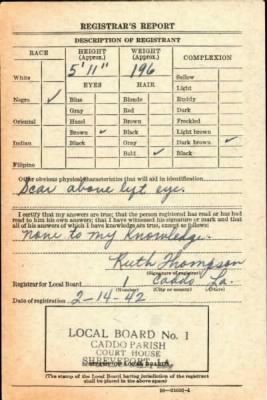 REGISTRAR'S REPORT
DESCRIPTION OF REGISTRANT
RACE HEIGHT (Approx.) WEIGHT (Approx.) COMPLEXION
5' 11" 196
White EYES HAIR Sallow
Light
Negro ✓ Blue Blonde Ruddy
Gray Red Dark
Oriental Hazel Brown Freckled
Brown ✓ Black Light brown
Indian Black Gray Dark brown ✓
Bald ✓ Black
Filipino
Other obvious physical characteristics that will aid in identification
Scar above left eye.
I certify that my answers are true; that the person registered has read or has had
read to him his own answers; that I have witnessed his signature or mark and that
all of his answers of which I have knowledge are true, except as follows:
None to my Knowledge.
Ruth Thompson
(Signature of registrar)
Registrar for Local Board Caddo, La.
(Number) (City or county) (State)
Date of registration 2-14-42
LOCAL BOARD No. 1
CADDO PARISH
COURT HOUSE
SHREVEPORT, LA.
(The stamp of the Local Board having jurisdiction of the registrant
shall be placed in the above space)